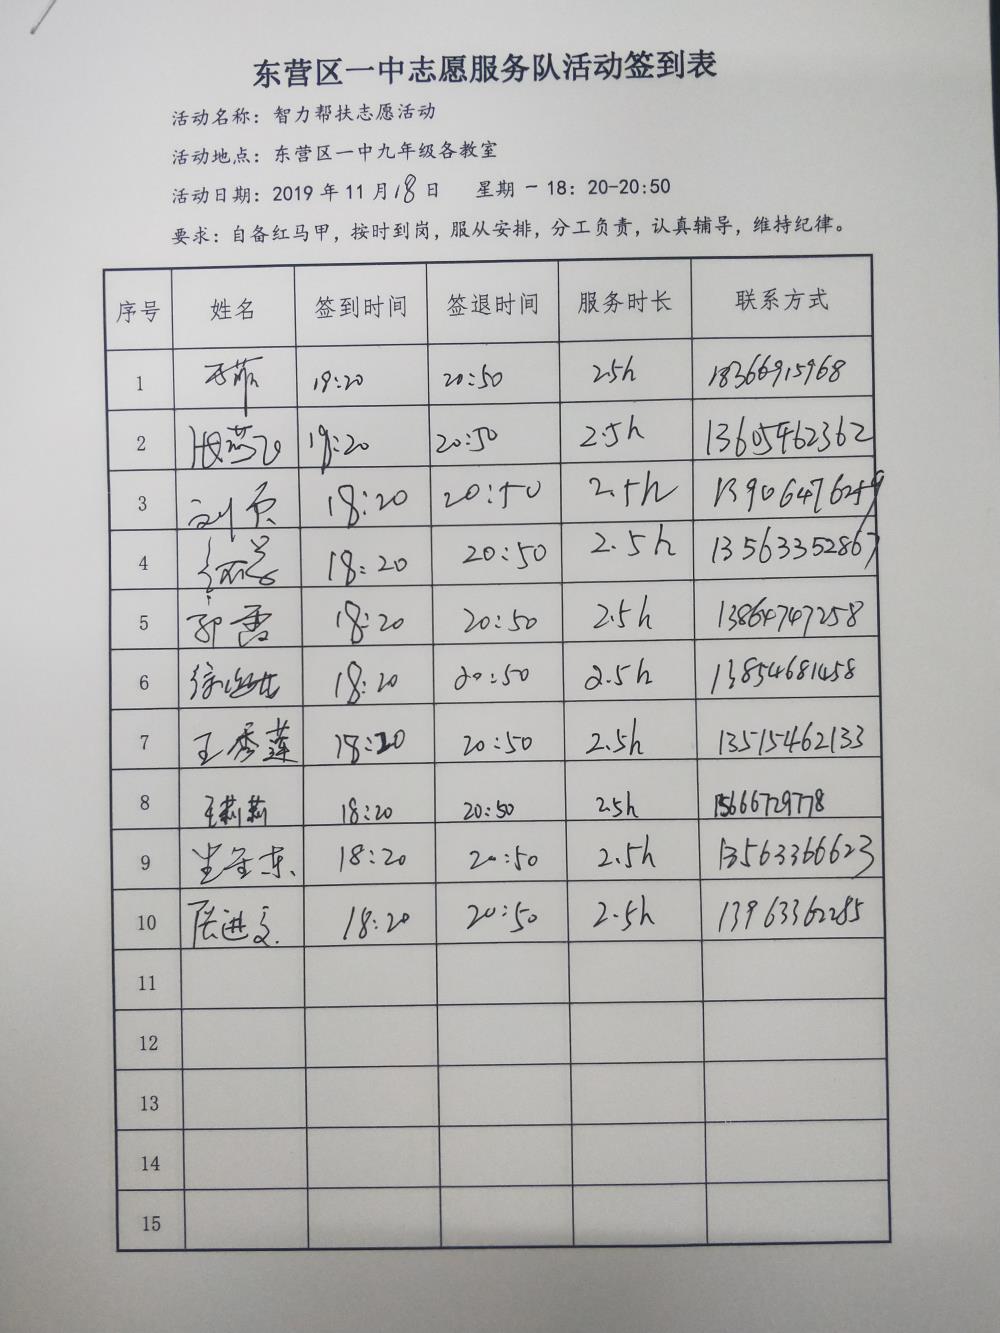 东营区一中志愿服务队活动签到表
活动名称：智力帮扶志愿活动
活动地点：东营区一中九年级各教室
活动日期：2019 年 11 月 18 日 星期一 18：20-20:50
要求：自备红马甲，按时到岗，服从安排，分工负责，认真辅导，维持纪律。
序号 姓名 签到时间 签退时间 服务时长 联系方式
1 19:20 20:50 2.5h 18366915968
2 19:20 20:50 2.5h 13605462362
3 18:20 20:50 2.5h 13906476259
4 18:20 20:50 2.5h 13563352867
5 郭雷 18:20 20:50 2.5h 13864747258
6 18:20 20:50 2.5h 13854681458
7 王秀莲 18:20 20:50 2.5h 13515462133
8 王莉莉 18:20 20:50 2.5h 15666729778
9 18:20 20:50 2.5h 13563366623
10 张进文 18:20 20:50 2.5h 13963362285
11
12
13
14
15